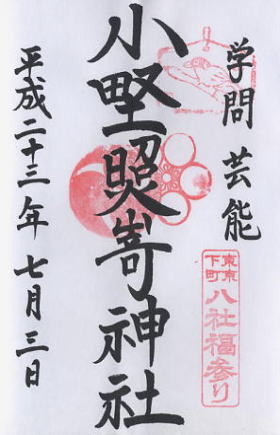 学問 芸能
東京
下町
八社福参り
小野照崎神社
平成二十三年 七月三日